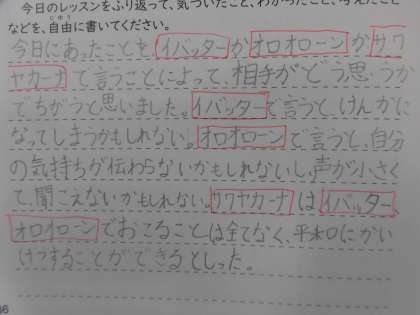 今日のレッスンをふり返って、気づいたこと、わかったこと、考えたこと
などを、自由に書いてください。
今日にあったことを イバッターか オロオローン か サワ
ヤカーナ で言うことによって、相手がどう思うか
でちがうと思いました。イバッターで言うと、けんかに
なってしまうかもしれない。オロオローンで言うと、自分
の気持ちが伝わらないかもしれないし、声が小さく
て、聞こえないかもしれない。サワヤカーナ は イバッター、
オロイローン でおこることは全てなく、平和にかい
けつすることができるとしった。